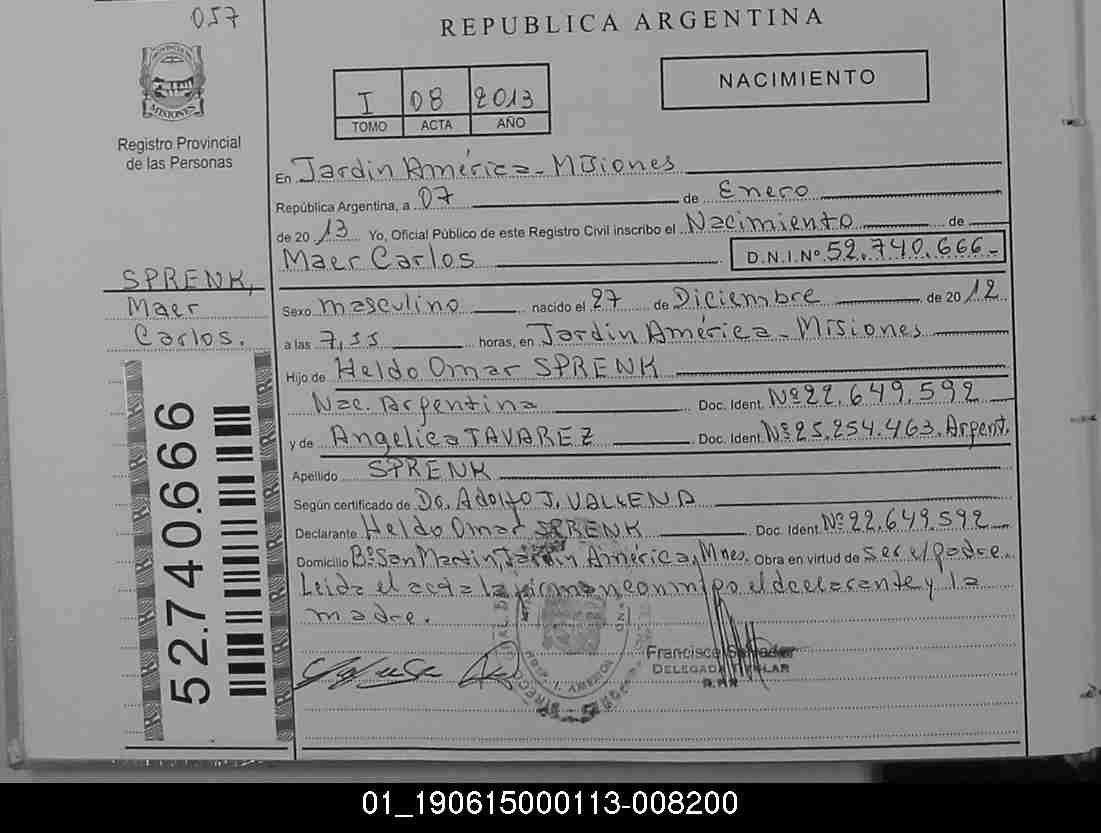 057
REPUBLICA ARGENTINA
PROVINCIA DE
MISIONES
Registro Provincial
de las Personas
I 08 2013
TOMO ACTA AÑO
NACIMIENTO
En Jardin América - Misiones
República Argentina, a 07 de Enero
de 2013 Yo, Oficial Público de este Registro Civil inscribo el Nacimiento de
Maer Carlos D.N.I.Nº 52.740.666-
SPRENK,
Maer
Carlos.
Sexo masculino nacido el 27 de Diciembre de 2012
a las 7,55 horas, en Jardin América - Misiones
Hijo de Heldo Omar SPRENK
Nac. Argentina Doc. Ident. Nº 22.649.592
y de Angelica TAVAREZ Doc. Ident. Nº 25.254.463. Argent.
Apellido SPRENK
Según certificado de Dr. Adolfo J.
Declarante Heldo Omar SPRENK Doc. Ident. Nº 22.649.592
Domicilio Bº San Martin, Jardin América, Mnes. Obra en virtud de ser el padre.
Leida el acta la firman conmigo el declarante y la
madre.
52.740.666
Francisco
DELEGADA TITULAR
01_190615000113-008200